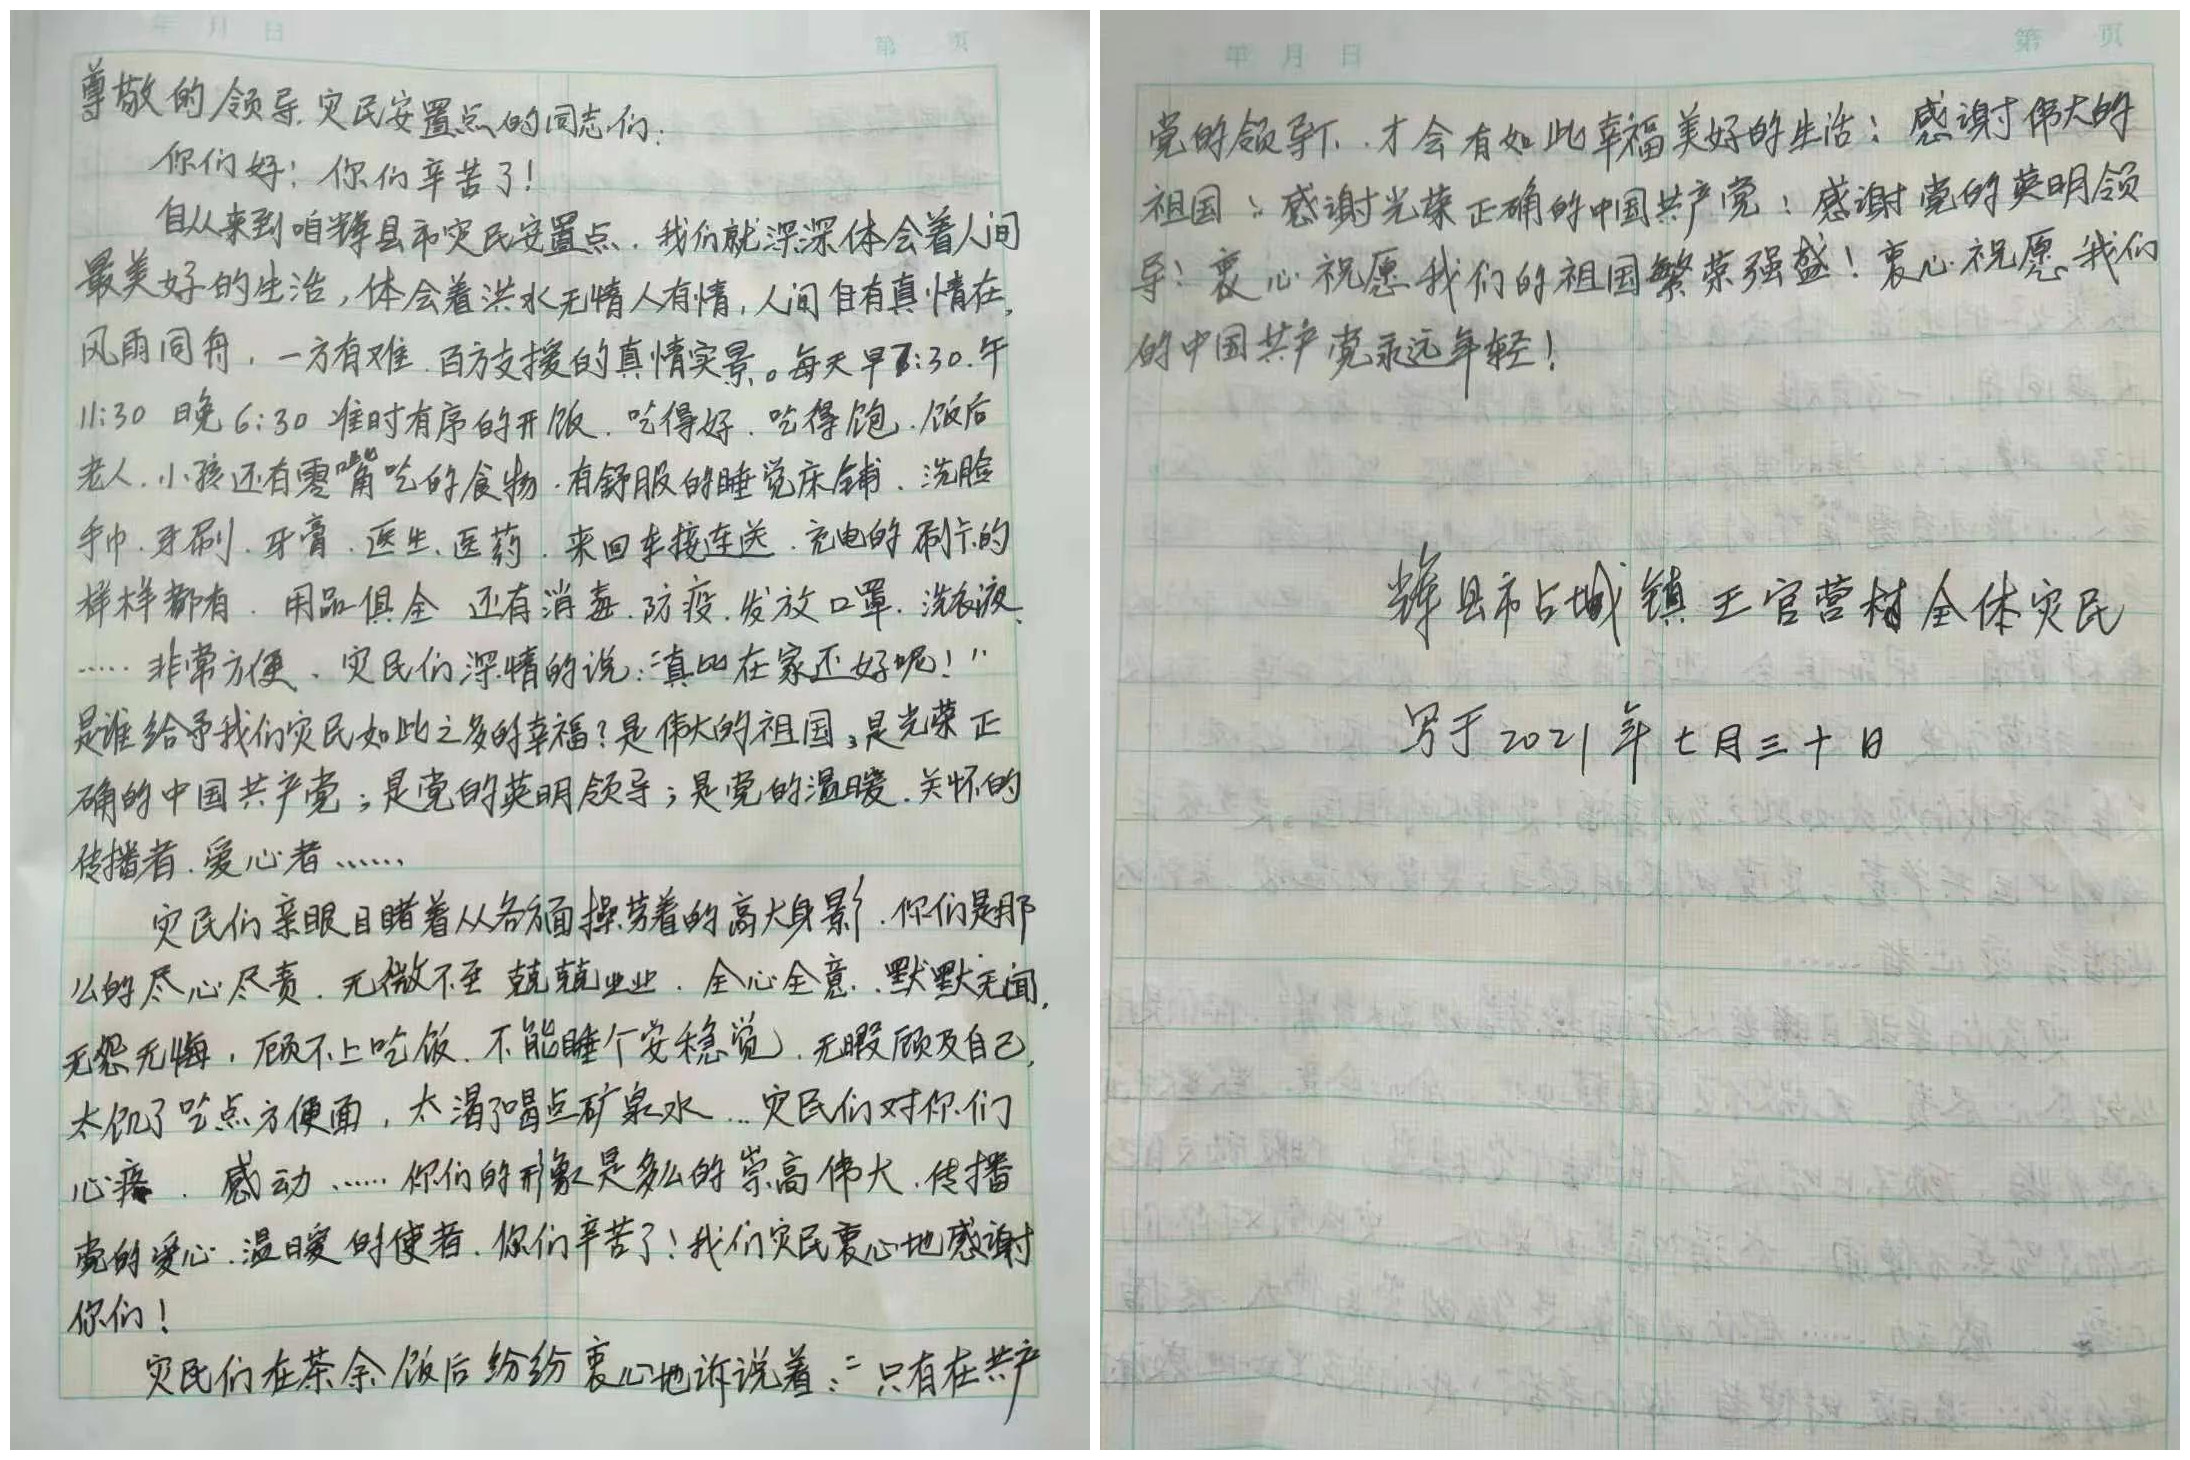 年 月 日
第 页
尊敬的领导、灾民安置点的同志们:
你们好!你们辛苦了!
自从来到咱辉县市灾民安置点、我们就深深体会着人间
最美好的生活,体会着洪水无情人有情,人间自有真情在,
风雨同舟,一方有难、百方支援的真情实景。每天早7:30、午
11:30 晚6:30准时有序的开饭、吃得好、吃得饱、饭后
老人、小孩还有零嘴吃的食物、有舒服的睡觉床铺、洗脸
手巾、牙刷、牙膏、医生、医药、来回车接车送、充电的刷卡的
样样都有、用品俱全 还有消毒、防疫、发放口罩、洗衣液、
……非常方便、灾民们深情的说:“真比在家还好呢!”
是谁给予我们灾民如此之多的幸福?是伟大的祖国;是光荣正
确的中国共产党;是党的英明领导;是党的温暖、关怀的
传播者、爱心者……
灾民们亲眼目睹着从各方面操劳着的高大身影、你们是那
么的尽心尽责、无微不至 兢兢业业、全心全意、默默无闻,
无怨无悔,顾不上吃饭、不能睡个安稳觉、无暇顾及自己,
太饥了吃点方便面,太渴了喝点矿泉水…灾民们对你们
心疼、感动……你们的形象是多么的崇高伟大、传播
党的爱心、温暖的使者、你们辛苦了!我们灾民衷心地感谢
你们!
灾民们在茶余饭后纷纷衷心地诉说着:“只有在共产
年 月 日
第 页
党的领导下、才会有如此幸福美好的生活!感谢伟大的
祖国!感谢光荣正确的中国共产党!感谢党的英明领
导!衷心祝愿我们的祖国繁荣强盛!衷心祝愿我们
的中国共产党永远年轻!
辉县市占城镇王官营村全体灾民
写于2021年七月三十日